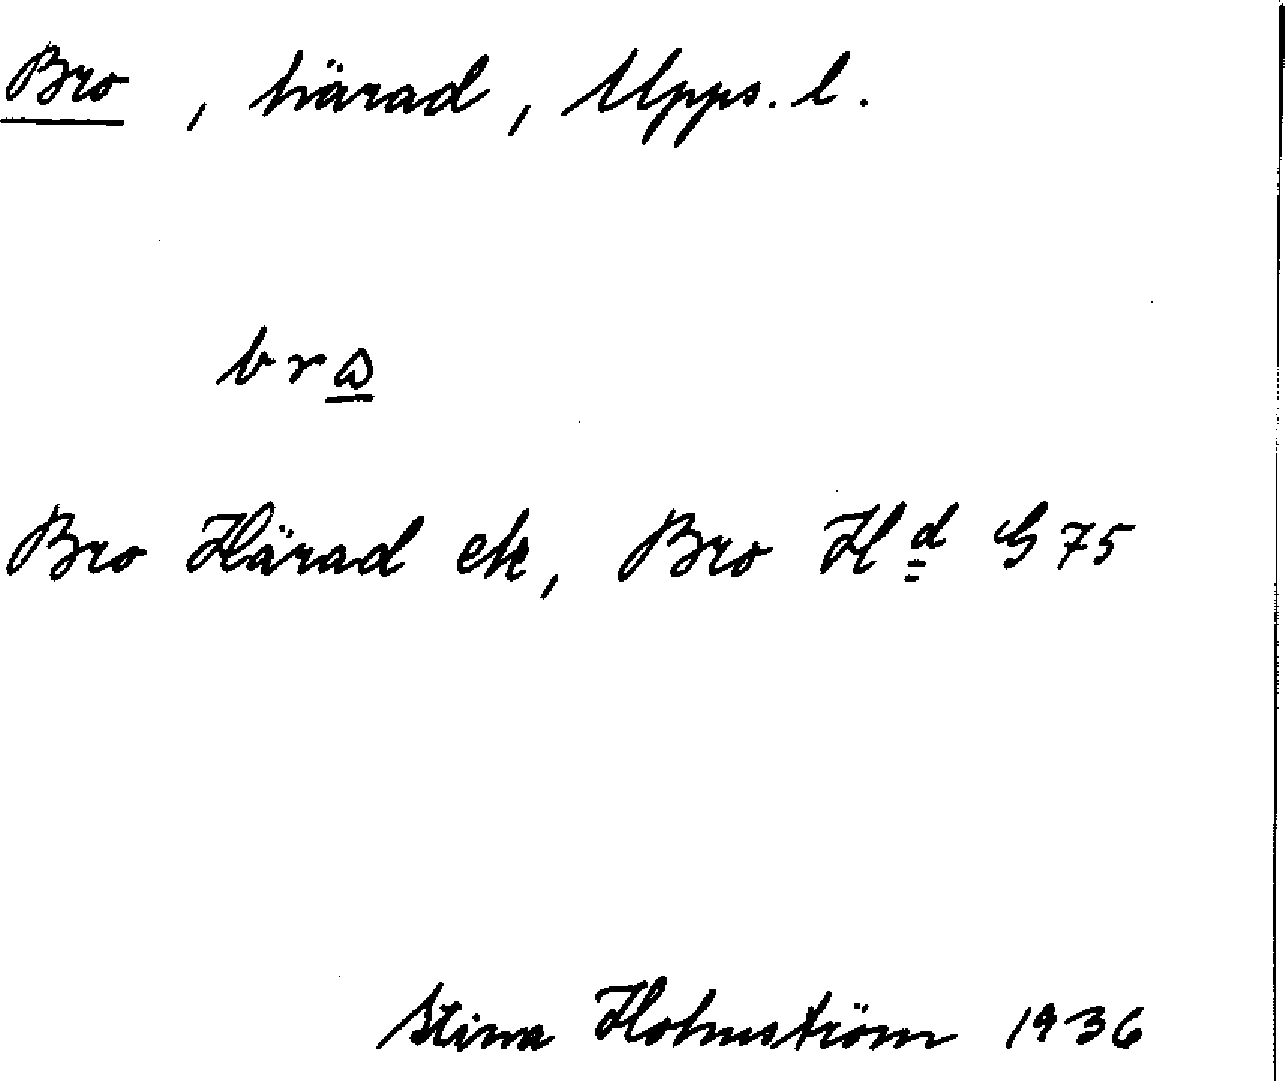 Bro, härad, Upps. l.
brω
Bro Härad ek, Bro Hd G 75
Stina Holmström 1936